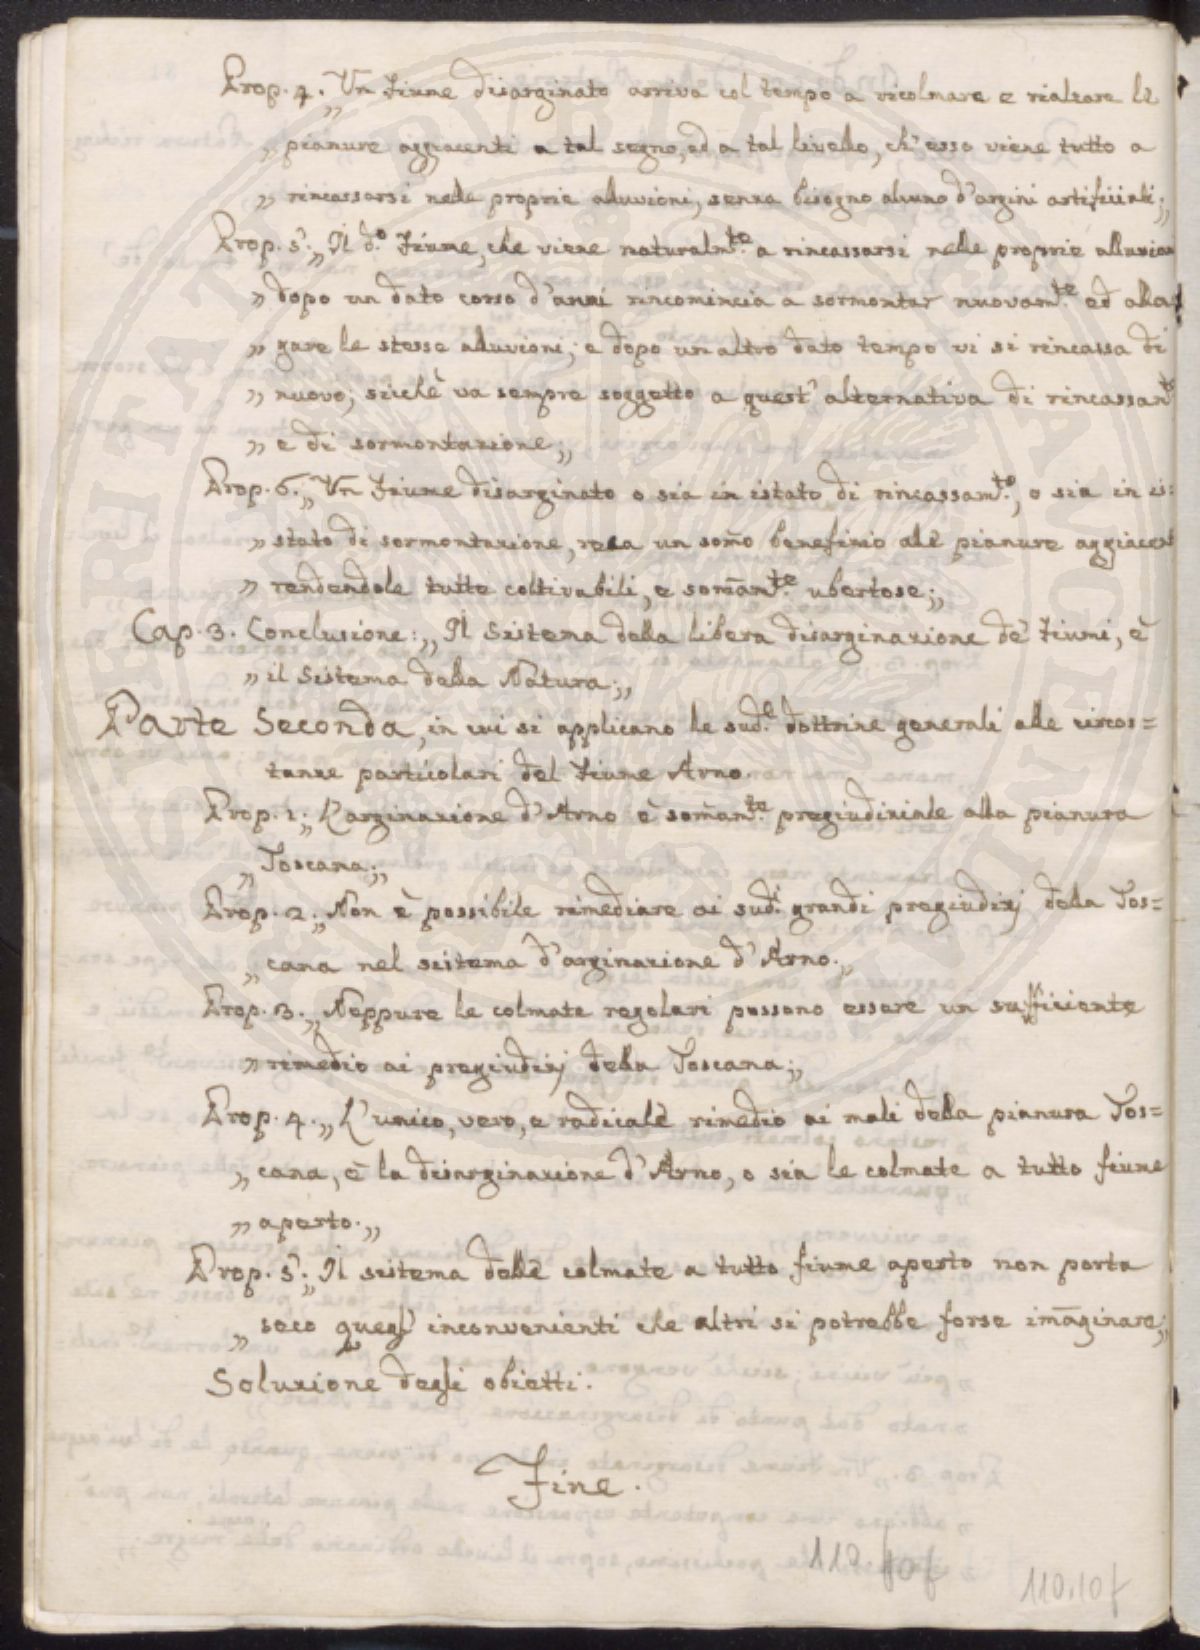 Prop. 4. „ Un Fiume disarginato arriva col tempo a ricolmare e rialzare le
„ pianure aggiacenti a tal segno, ed a tal livello, ch'esso viene tutto a
„ rincassarsi nelle proprie alluvioni, senza bisogno alcuno d'argini artifiziali; „
Prop. 5. „ Il do. Fiume, che viene naturalmte. a rincassarsi nelle proprie alluvion
„ dopo un dato corso d'anni rincomincia a sormontar nuovamte. ed alla
„ gare le stesse alluvioni; e dopo un altro dato tempo vi si rincassa di
„ nuovo; sicchè va sempre soggetto a quest'alternativa di rincassamto
„ e di sormontazione; „
Prop. 6. „ Un Fiume disarginato o sia in istato di rincassamto., o sia in is=
„ stato di sormontazione, reca un som̄o benefizio alle pianure aggiacen
„ rendendole tutte coltivabili, e som̄amte. ubertose; „
Cap. 3. Conclusione: „ Il Sistema della libera disarginazione de' Fiumi, è
„ il Sistema della Natura; „
Parte Seconda, in cui si applicano le sude. dottrine generali alle circos=
tanze particolari del Fiume Arno.
Prop. 1. „ L'arginazione d'Arno è som̄amte. pregiudiziale alla pianura
„ Toscana; „
Prop. 2. „ Non è possibile rimediare ai sudi. grandi pregiudizj della Tos=
„ cana nel sistema d'arginazione d'Arno. „
Prop. 3. „ Neppure le colmate regolari possono essere un sufficiente
„ rimedio ai pregiudizj della Toscana; „
Prop. 4. „ L'unico, vero, e radicale rimedio ai mali della pianura Tos=
„ cana, è la disarginazione d'Arno, o sia le colmate a tutto fiume
„ aperto. „
Prop. 5. „ Il sistema delle colmate a tutto fiume aperto non porta
„ seco quegl' inconvenienti che altri si potrebbe forse im̄aginare; „
Soluzione degli obietti.
Fine.
110.107